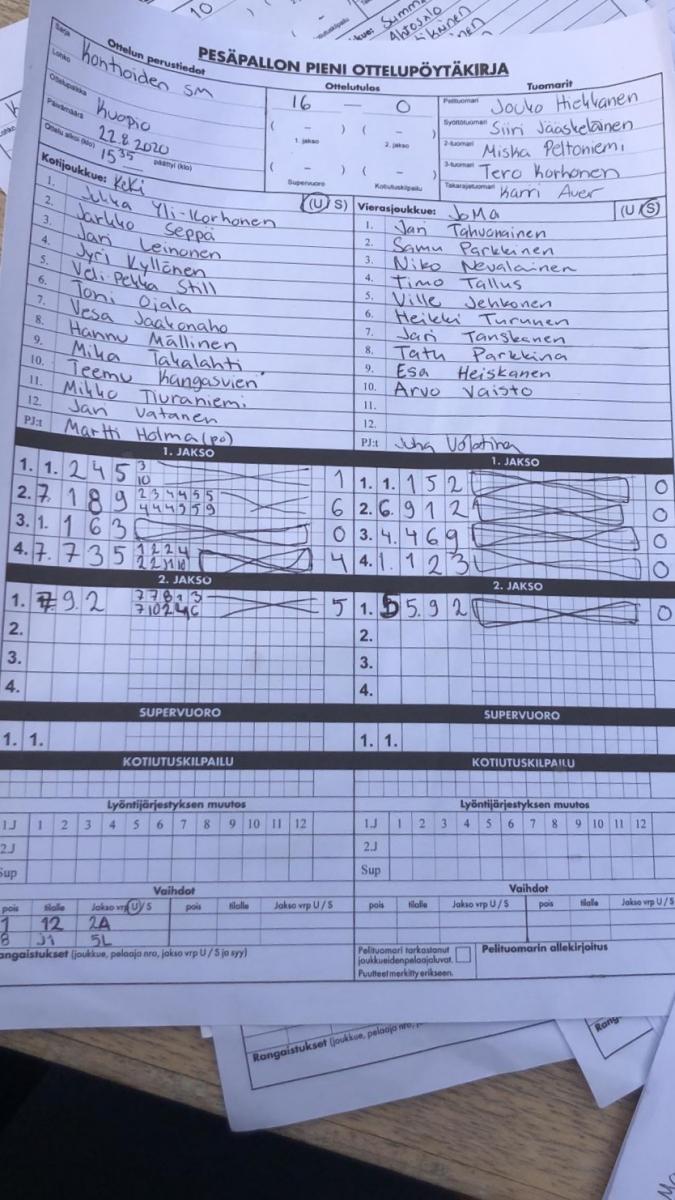 10
PESÄPALLON PIENI OTTELUPÖYTÄKIRJA
Sarja
Ottelun perustiedot
Kontioiden SM
Lohko
Ottelupaikka
Kuopio
Päivämäärä
22.8.2020
Ottelu alkoi (klo) 15 35 päättyi (klo)
Ottelutulos
16 – 0
( – ) ( – )
1. jakso 2. jakso
( – ) ( – )
Supervuoro Kotiutuskilpailu
Tuomarit
Pelituomari Jouko Hiekkanen
Syöttötuomari Siiri Jääskeläinen
2-tuomari Miska Peltoniemi
3-tuomari Tero Korhonen
Takarajatuomari Karri Auer
Kotijoukkue: KeKi (U S)
1. Jukka Yli-Korhonen
2. Jarkko Seppä
3. Jari Leinonen
4. Jyri Kyllönen
5. Veli-Pekka Still
6. Toni Ojala
7. Vesa Jaakonaho
8. Hannu Mällinen
9. Mika Takalahti
10. Teemu Kangasvieri
11. Mikko Tiuraniemi
12. Jari Vatanen
PJ:t Martti Holma (po)
Vierasjoukkue: JoMa (U S)
1. Jari Tahvanainen
2. Samu Parkkinen
3. Niko Nevalainen
4. Timo Tallus
5. Ville Jehkonen
6. Heikki Turunen
7. Jari Tanskanen
8. Tatu Parkkina
9. Esa Heiskanen
10. Arvo Vaisto
11.
12.
PJ:t Juha
1. JAKSO
1. 1. 2 4 5 3 10 1
2. 7. 1 8 9 2 3 4 4 5 5 4 4 4 5 5 9 6
3. 1. 1 6 3 0
4. 7. 7 3 5 1 2 2 4 2 2 11 10 4
1. JAKSO
1. 1. 1 5 2 0
2. 6. 9 1 2 0
3. 4. 4 6 9 0
4. 1. 1 2 3 0
2. JAKSO
1. 7 9. 2 7 7 8 1 3 7 10 2 4 6 5
2.
3.
4.
2. JAKSO
1. 5 5. 9 2 0
2.
3.
4.
SUPERVUORO
1. 1.
SUPERVUORO
1. 1.
KOTIUTUSKILPAILU
KOTIUTUSKILPAILU
Lyöntijärjestyksen muutos
1.J 1 2 3 4 5 6 7 8 9 10 11 12
2.J
Sup
Lyöntijärjestyksen muutos
1.J 1 2 3 4 5 6 7 8 9 10 11 12
2.J
Sup
Vaihdot
pois tilalle Jakso vrp U / S pois tilalle Jakso vrp U / S
1 12 2A
8 J1 5L
Vaihdot
pois tilalle Jakso vrp U / S pois tilalle Jakso vrp U / S
angaistukset (joukkue, pelaaja nro, jakso vrp U / S ja syy)
Pelituomari tarkastanut
joukkueidenpelaajaluvat.
Puutteet merkitty erikseen.
Pelituomarin allekirjoitus
Rangaistukset (joukkue, pelaaja nro,
Rang